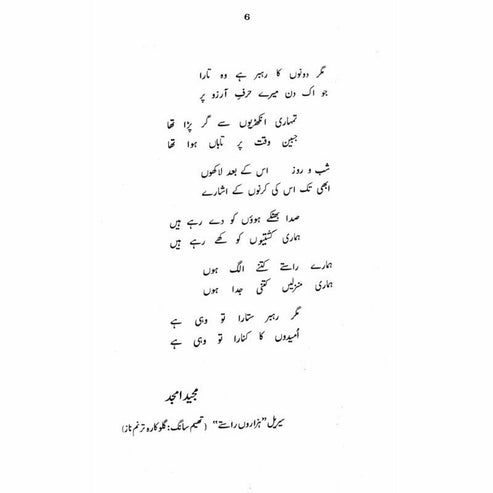 6
مگر دونوں کا رہبر ہے وہ تارا
جو اک دن میرے حرفِ آرزو پر
تمہاری انکھڑیوں سے گر پڑا تھا
جبین وقت پر تاباں ہوا تھا
شب و روز اس کے بعد لاکھوں
ابھی تک اس کی کرنوں کے اشارے
صدا بھٹکے ہوؤں کو دے رہے ہیں
ہماری کشتیوں کو کھے رہے ہیں
ہمارے راستے کتنے الگ ہوں
ہماری منزلیں کتنی جدا ہوں
مگر رہبر ستارا تو وہی ہے
اُمیدوں کا کنارا تو وہی ہے
مجید امجد
سیریل "ہزاروں راستے" (تھیم سانگ: گلوکارہ ترنم ناز)